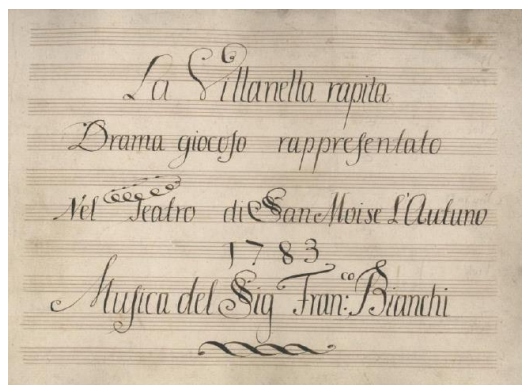 La Villanella rapita
Drama giocoso rappresentato
Nel Teatro di San Moise L'Autuno
1783
Musica del Sig Fran:co Bianchi